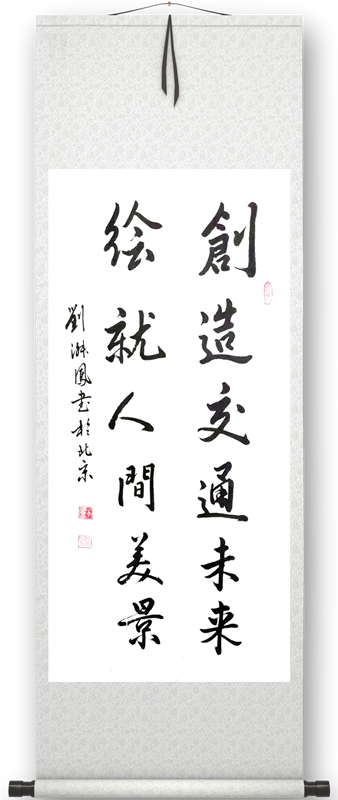 創造交通未来
绘就人間美景
劉淋鳳書於北京